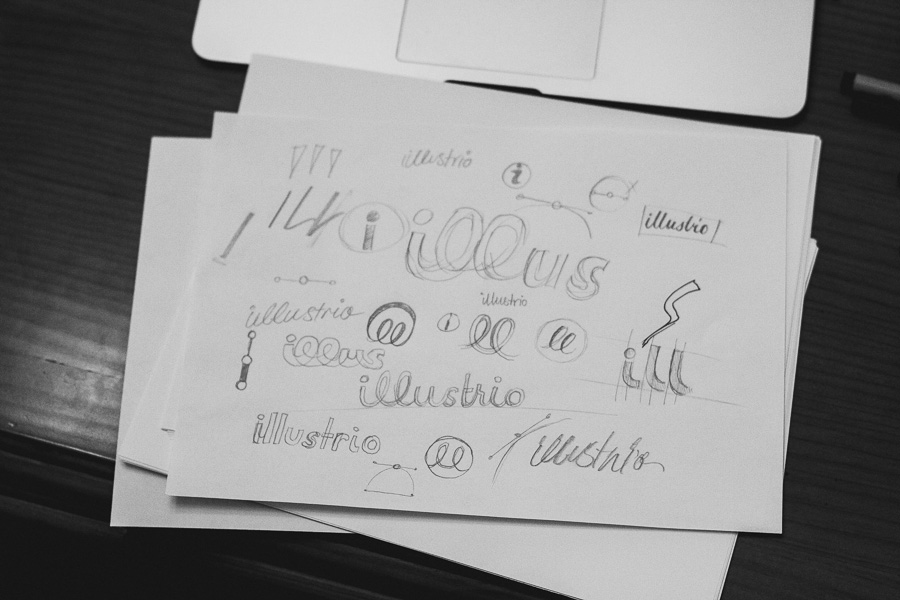 illustrio
i
illustrio
i illus
illustrio
illustrio
ll i ll ll
illus
ill
illustrio
illustrio
ll
illustrio